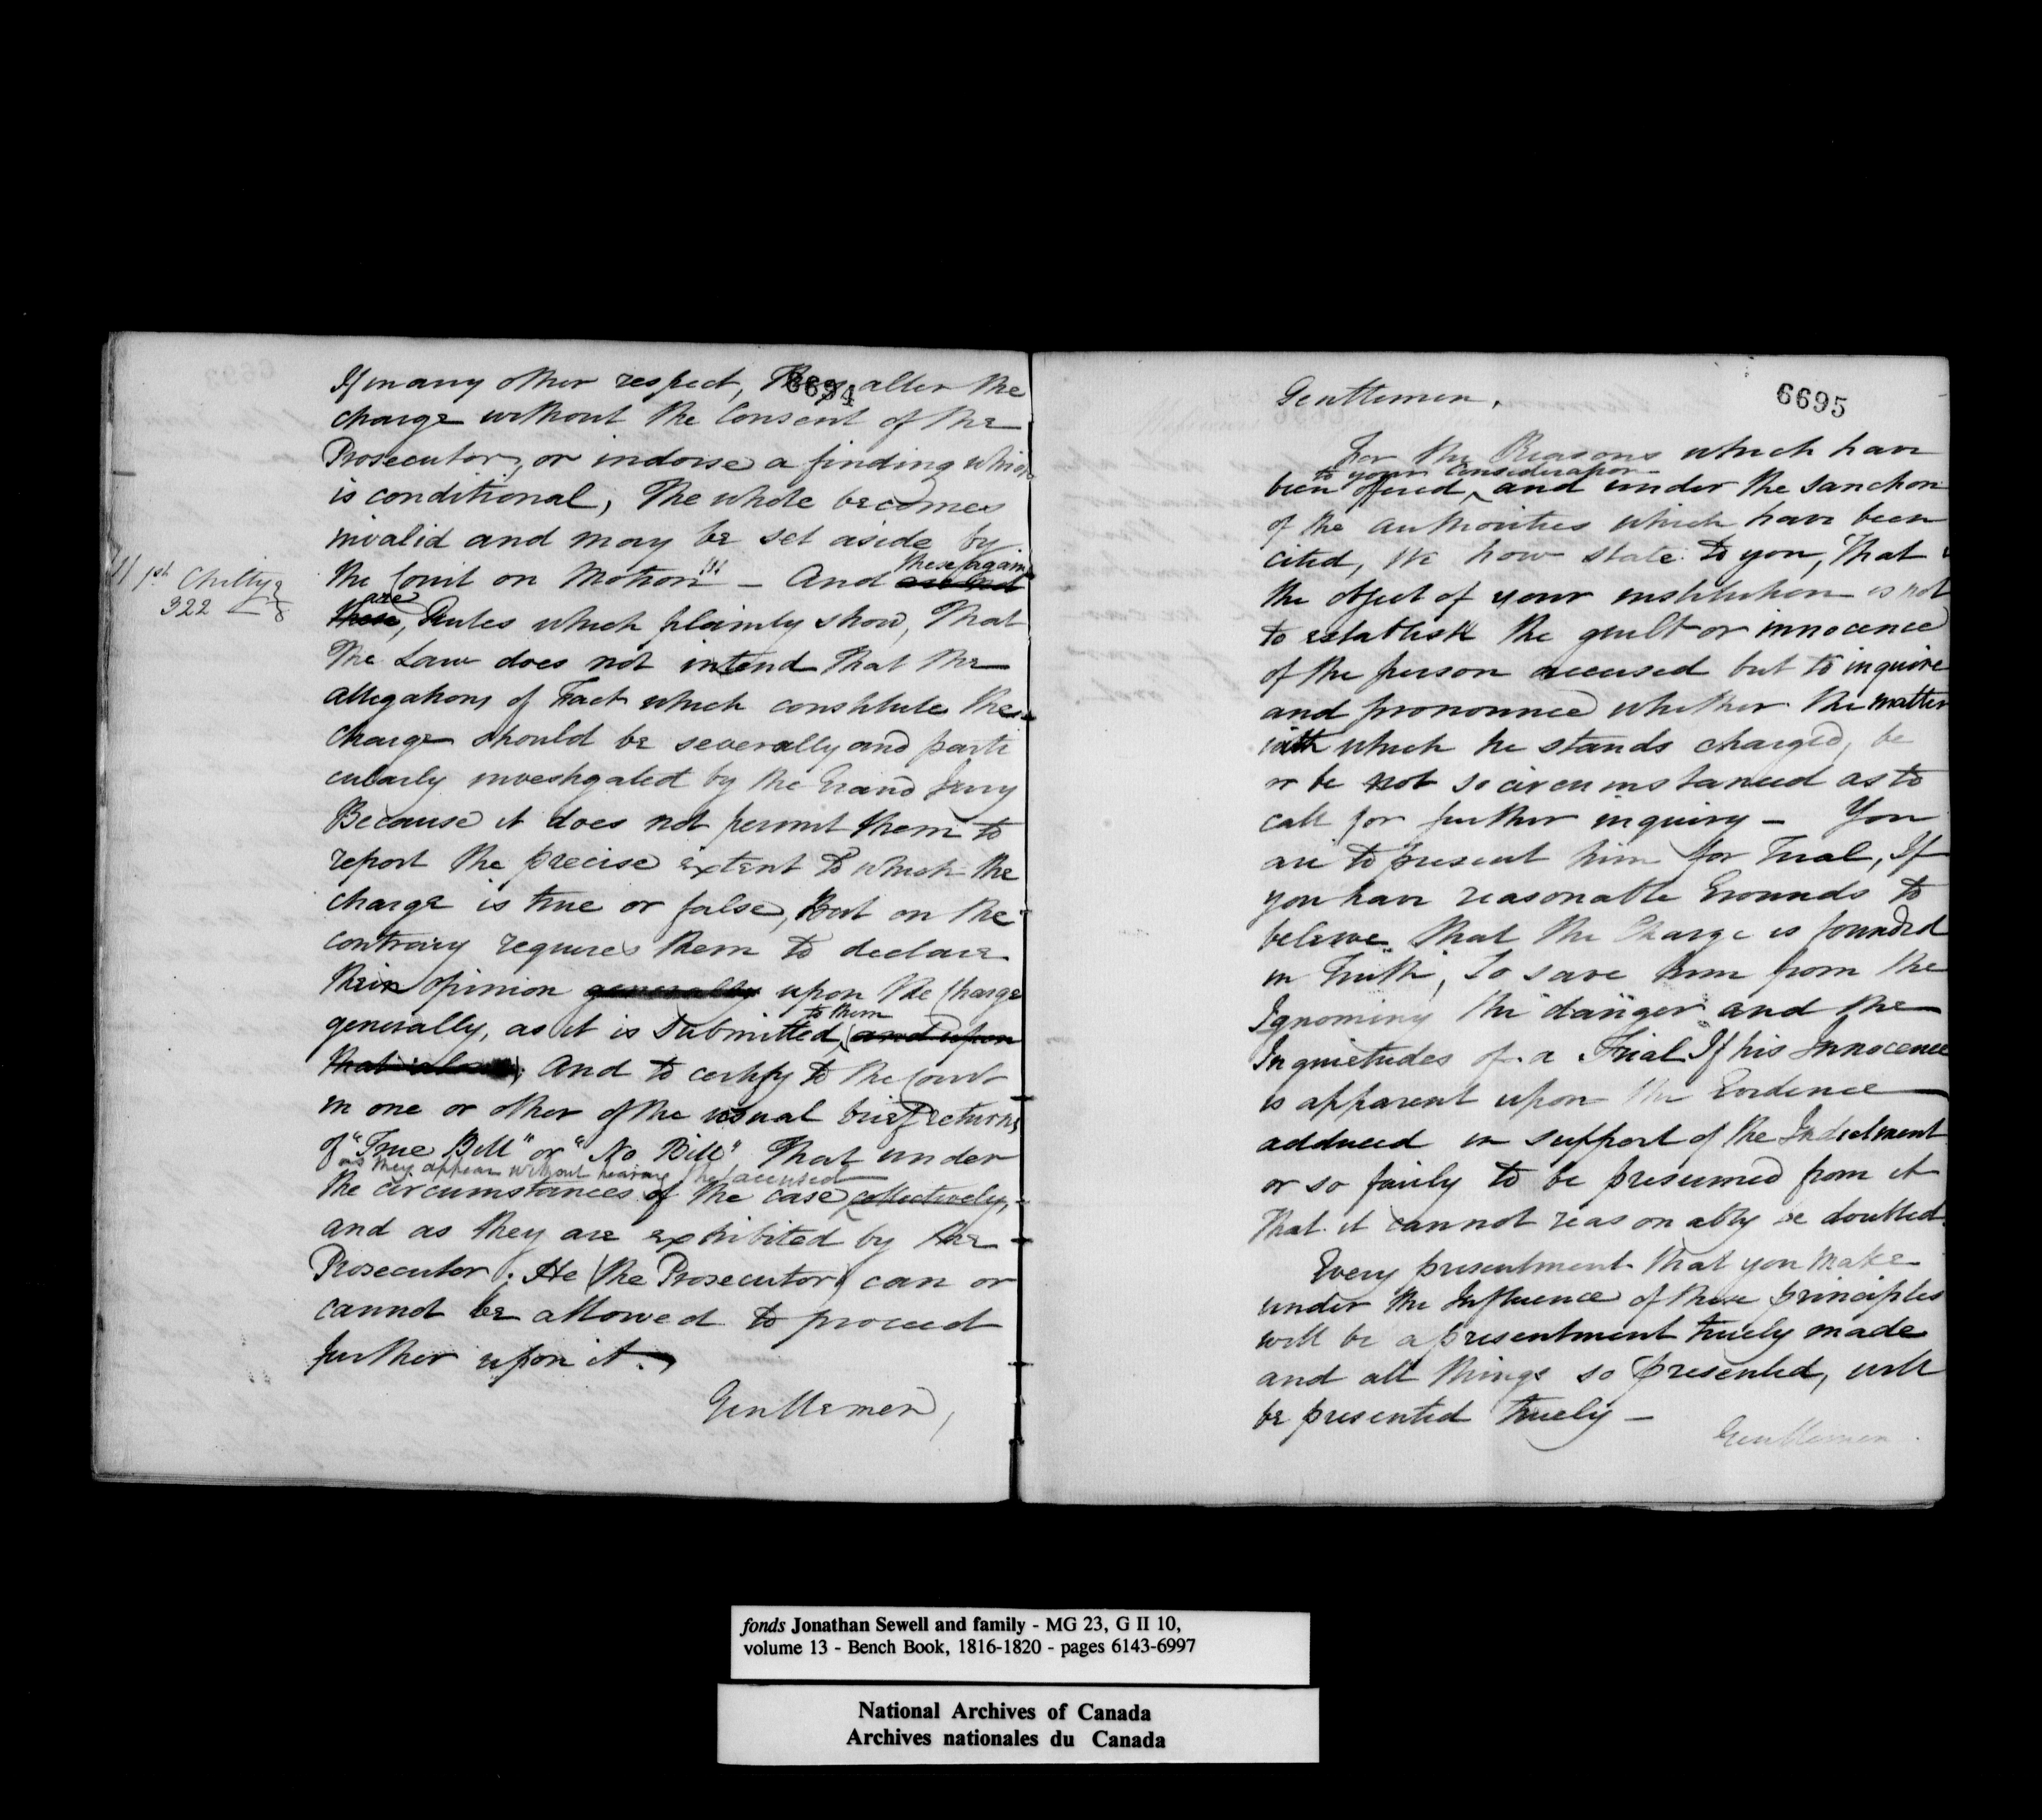 6694
If in any other respect, They alter the
charge without the Consent of the
Prosecutor, or indorse a finding which
is conditional, The whole becomes
invalid and may be set aside by
these again
the Court on Motion - And are not
1st Chitty
322
are
these, Rules which plainly show, That
The Law does not intend That the
allegations of Fact which constitute the
charge should be severally and parti
cularly investigated by the Grand Jury
Because it does not permit them to
report the precise extent to which the
charge is true or false, But on the
contrary requires them to declare
their opinion generally upon the Charge
to them
generally, as it is Submitted, and upon
that alone; And to certify to the Court
in one or other of the usual brief returns
of "True Bill" or "No Bill" That under
as they appear without hearing the accused
the circumstances of the case collectively,
and as they are exhibited by the
Prosecutor; He (the Prosecutor) can or
cannot be allowed to proceed
further upon it.
Gentlemen,
6695
Gentlemen,
For the Reasons which have
to your Consideration
been offered, and under the sanction
of the authorities which have been
cited, We now state to you, That
the object of your institution is not
to establish the guilt or innocence
of the person accused but to inquire
and pronounce whether the matter
with which he stands charged, be
or be not so circumstanced as to
call for further inquiry - You
are to present him for Trial, If
you have reasonable Grounds to
believe That the Charge is founded
in Truth, To save him from the
Ignominy the danger and the
Inquietudes of a Trial If his Innocence
is apparent upon the Evidence
adduced in support of the Indictment
or so fairly to be presumed from it
That it cannot reasonably be doubted
Every presentment that you make
under the Influence of these principles
will be a presentment truely made
and all things so presented, will
be presented truely -
Gentlemen
fonds Jonathan Sewell and family - MG 23, G II 10,
volume 13 - Bench Book, 1816-1820 - pages 6143-6997
National Archives of Canada
Archives nationales du Canada